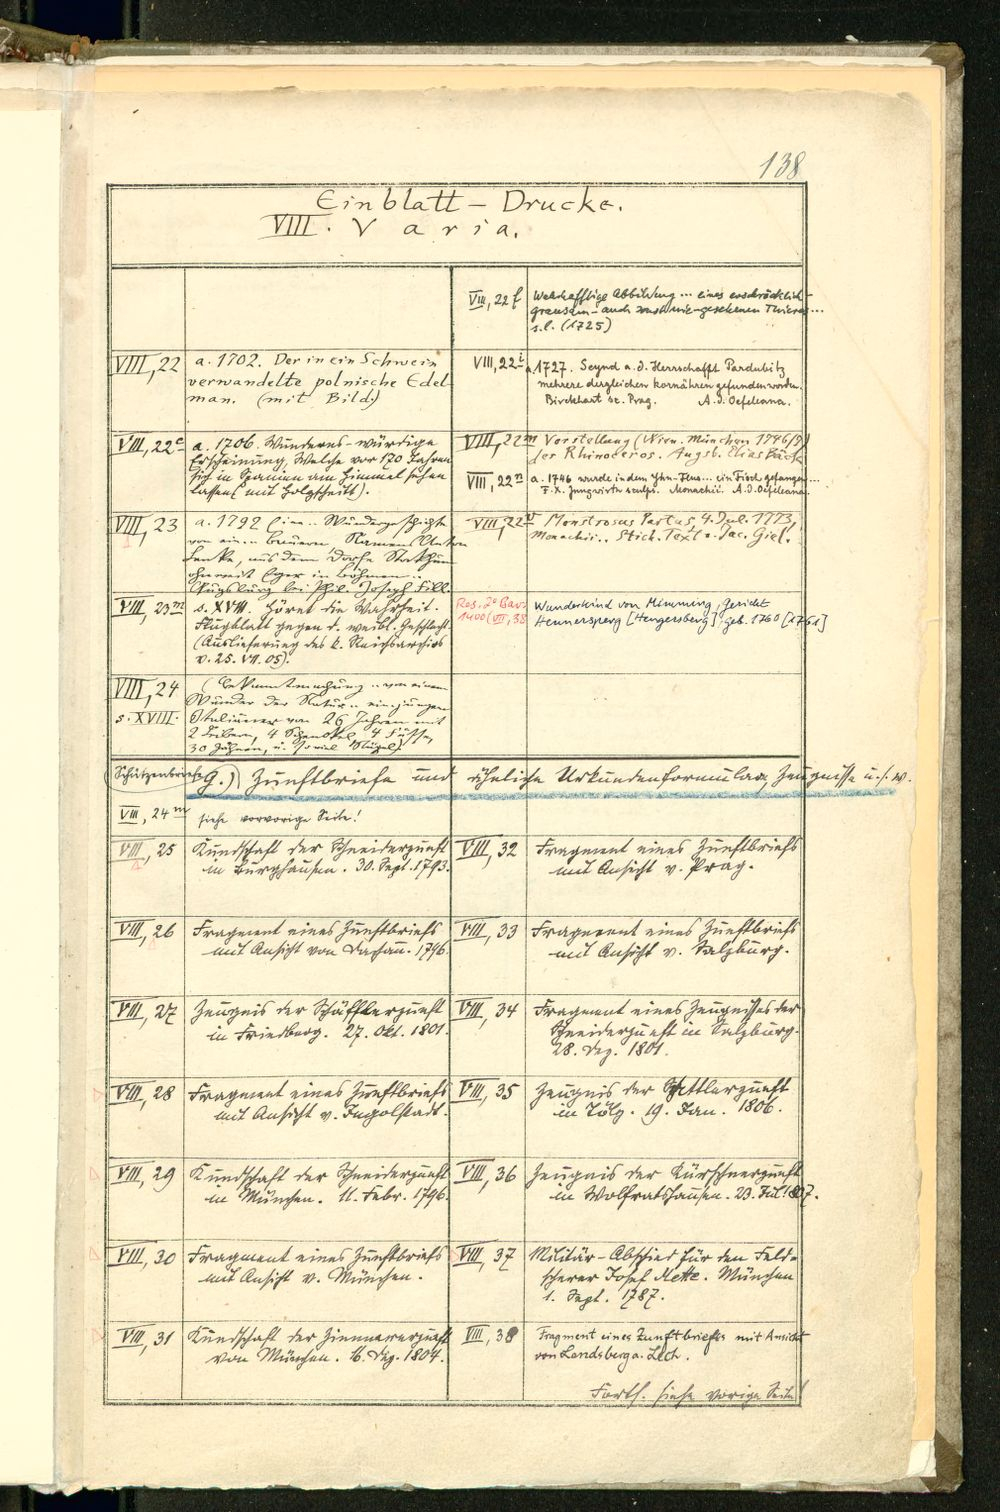 138
Einblatt-Drucke.
VIII. Varia.
VIII, 22
a. 1702. Der in ein Schwein
verwandelte polnische Edel-
man. (mit Bild.)
VIII, 22c
a. 1706. Wunderns-würdige
Erscheinung, Welche vor 170 Jahren
sich in Spanien am Himmel sehen
lassen (mit Holzschnitt).
VIII, 23
a. 1792 Eine .. Wundergeschichte
von einem Bauern Namens Anton
dem Dorfe
ohnweit Eger in Böhmen ..
Augsburg bei Phil. Joseph Fill.
VIII, 23m
s. XVIII. Höret die Wahrheit.
Flugblatt gegen d. weibl. Geschlecht.
(Auslieferung des k. Reichsarchivs
v. 25. VII. 05).
VIII, 24
s. XVIII.
(Bekanntmachung .. von einem
Wunder der Natur .. ein jungen
Italiäner von 26 Jahren mit
2 Leibern, 4 Schenkel, 4 Füsse,
30 Zähnen, u. so viel Nägel)
VIII, 22f
Wahrhafftige Abbildung ... eines erschröcklich-
grausam- auch sonst nie-gesehenen Thieres ...
s.l. (1725)
VIII, 22i
a. 1727. Seynd a. d. Herrschafft Pardubitz
mehrere dergleichen Kornähren gefunden worden.
Birckhart sc. Prag. A. d. Oefeleana.
VIII, 22m
Vorstellung (Wien. München 1746/9)
des Rhinoceros. Augsb. Elias Bäck
VIII, 22n
a. 1746 wurde in dem Ihn-Flus ... ein Fisch gefangen ...
F. X. Jungwirth sculps. Monachii. A. d. Oefeleana.
VIII, 22r
Monstrosus Partus, 4. Jul. 1773,
Monachii .. Stich. Text v. Jac. Giel.
Res. 2° Bav.
1400 (VII, 38
Wunderkind von Mimming, Gericht
Hennersperg [Hengersberg] geb. 1760 [1761]
(Schützenbriefe) G.) Zunftbriefe und ähnliche Urkundenformulare, Zeugnisse u.s.w.
VIII, 24m
siehe vorvorige Seite!
VIII, 25
Kundschaft der Schneiderzunft
in Burghausen. 30. Sept. 1793.
VIII, 26
Fragment eines Zunftbriefs
mit Ansicht von Dachau. 1796.
VIII, 27
Zeugnis der Schäfflerzunft
in Friedberg. 27. Okt. 1801.
VIII, 28
Fragment eines Zunftbriefs
mit Ansicht v. Ingolstadt.
VIII, 29
Kundschaft der Schneiderzunft
in München. 11. Febr. 1796.
VIII, 30
Fragment eines Zunftbriefs
mit Ansicht v. München.
VIII, 31
Kundschaft der Zimmererzunft
von München. 16. Dez. 1804.
VIII, 32
Fragment eines Zunftbriefs
mit Ansicht v. Prag.
VIII, 33
Fragment eines Zunftbriefs
mit Ansicht v. Salzburg.
VIII, 34
Fragment eines Zeugnisses der
Schneiderzunft in Salzburg.
28. Dez. 1801.
VIII, 35
Zeugnis der Sattlerzunft
in Tölz. 19. Jan. 1806.
VIII, 36
Zeugnis der Kürschnerzunft
in Wolfratshausen. 23. Jul. 1807.
VIII, 37
Militär-Abschied für den Feld-
scherer Josef Mette. München
1. Sept. 1787.
VIII, 38
Fragment eines Zunftbriefes mit Ansicht
von Landsberg a. Lech.
Forts. siehe vorige Seite!